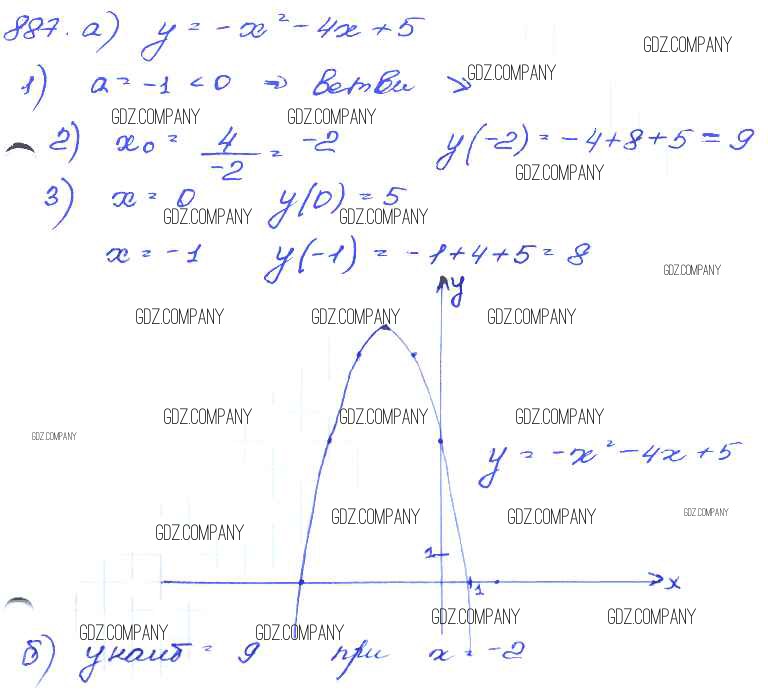 887. а) y = -x² - 4x + 5
GDZ.COMPANY
1) a = -1 < 0 ⇒ ветви ↘
GDZ.COMPANY
GDZ.COMPANY GDZ.COMPANY
2) x₀ = 4/-2 = -2 y(-2) = -4+8+5 = 9
GDZ.COMPANY
3) x = 0 y(0) = 5
GDZ.COMPANY GDZ.COMPANY
x = -1 y(-1) = -1+4+5 = 8
GDZ.COMPANY
y
GDZ.COMPANY GDZ.COMPANY GDZ.COMPANY
GDZ.COMPANY GDZ.COMPANY GDZ.COMPANY
GDZ.COMPANY
y = -x² - 4x + 5
GDZ.COMPANY GDZ.COMPANY GDZ.COMPANY GDZ.COMPANY
1
1 x
GDZ.COMPANY GDZ.COMPANY
GDZ.COMPANY GDZ.COMPANY
б) y наиб = 9 при x = -2